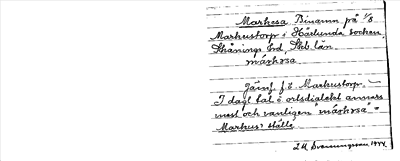 Markesa Binamn på 1/8
Markustorp i Härlunda socken
Skånings hd, Skb län.
märkesa
Jämf. f.ö Markustorp. —
I dagl. tal o ortsdialekt annars
mest och vanligen "märkesa" =
Markus' ställe
1944